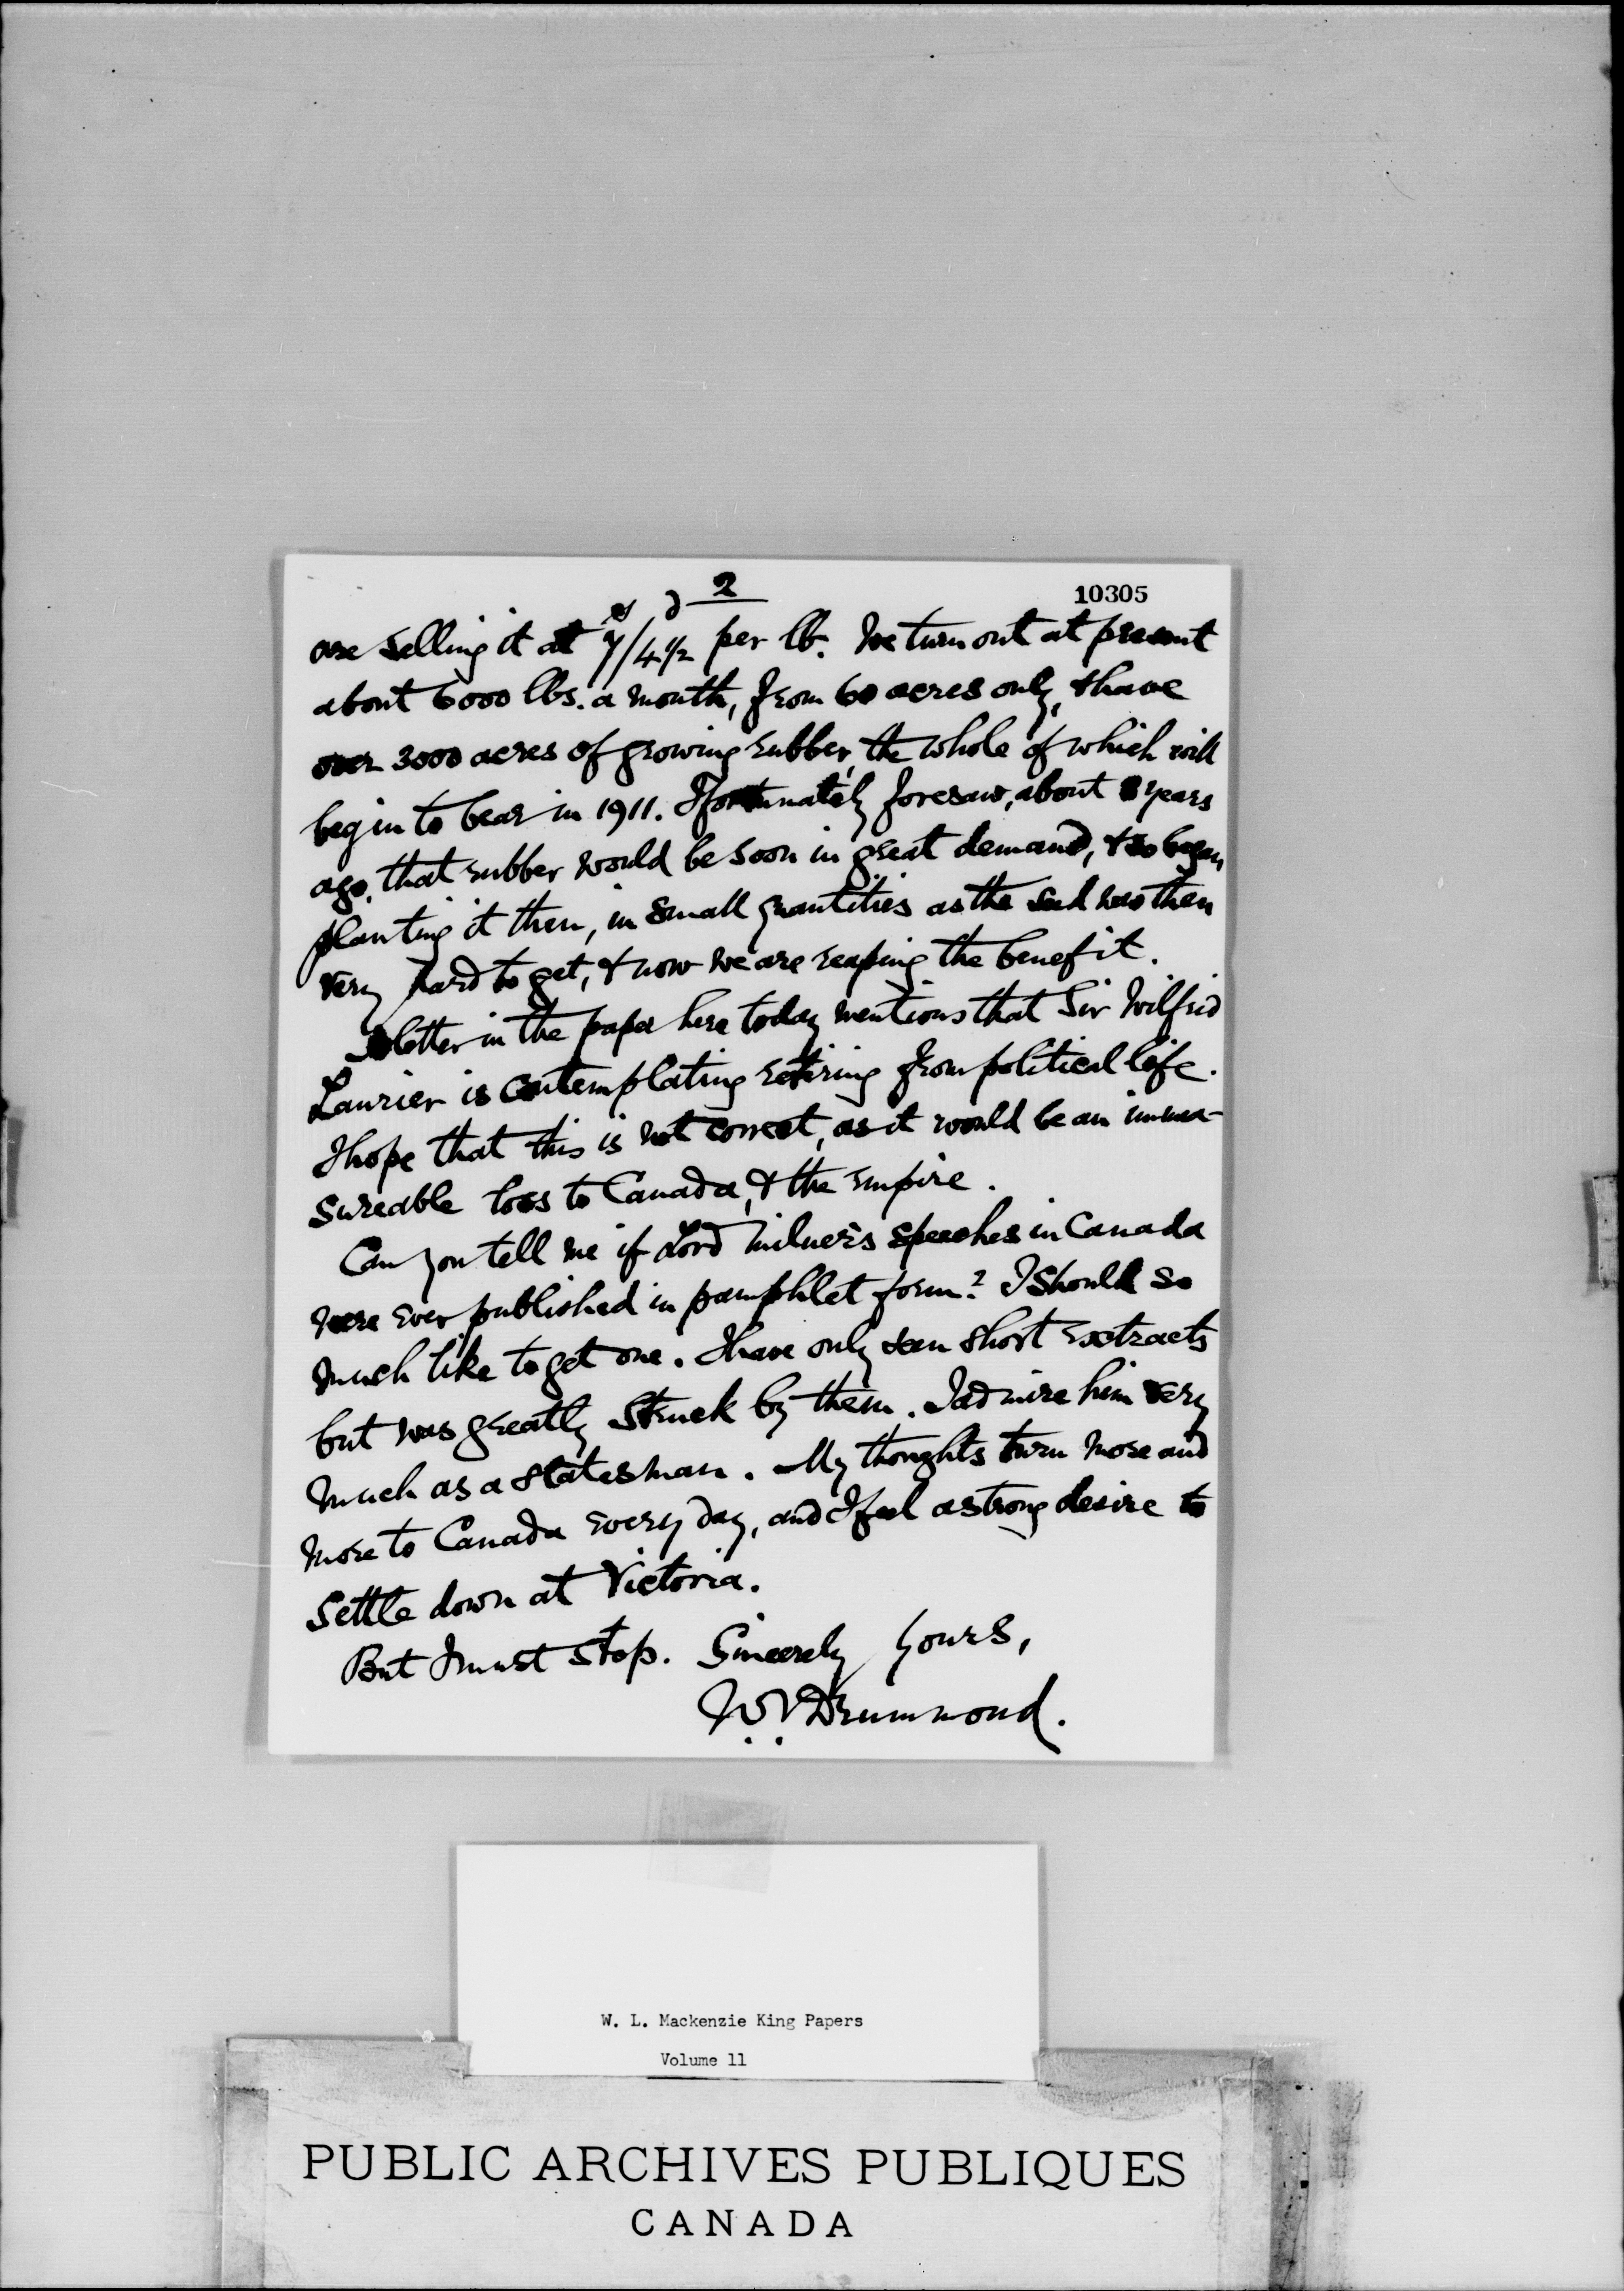 2
10305
are selling it at 7/4½ per lb. We turn out at present
about 6000 lbs. a month, from 60 acres only, & have
over 3000 acres of growing rubber, the whole of which will
begin to bear in 1911. I fortunately foresaw, about 8 years
ago, that rubber would be soon in great demand, & so began
planting it then, in small quantities as the seed was then
very hard to get, & now we are reaping the benefit.
A letter in the paper here today mentions that Sir Wilfrid
Laurier is contemplating retiring from political life.
I hope that this is not correct, as it would be an immea-
sureable loss to Canada, & the empire.
Can you tell me if Lord Milner's speeches in Canada
were ever published in pamphlet form? I should so
much like to get one. I have only seen short extracts
but was greatly struck by them. I admire him very
much as a statesman. My thoughts turn more and
more to Canada every day, and I feel a strong desire to
settle down at Victoria.
But I must stop. Sincerely yours,
W.V. Drummond.
W. L. Mackenzie King Papers
Volume 11
PUBLIC ARCHIVES PUBLIQUES
CANADA